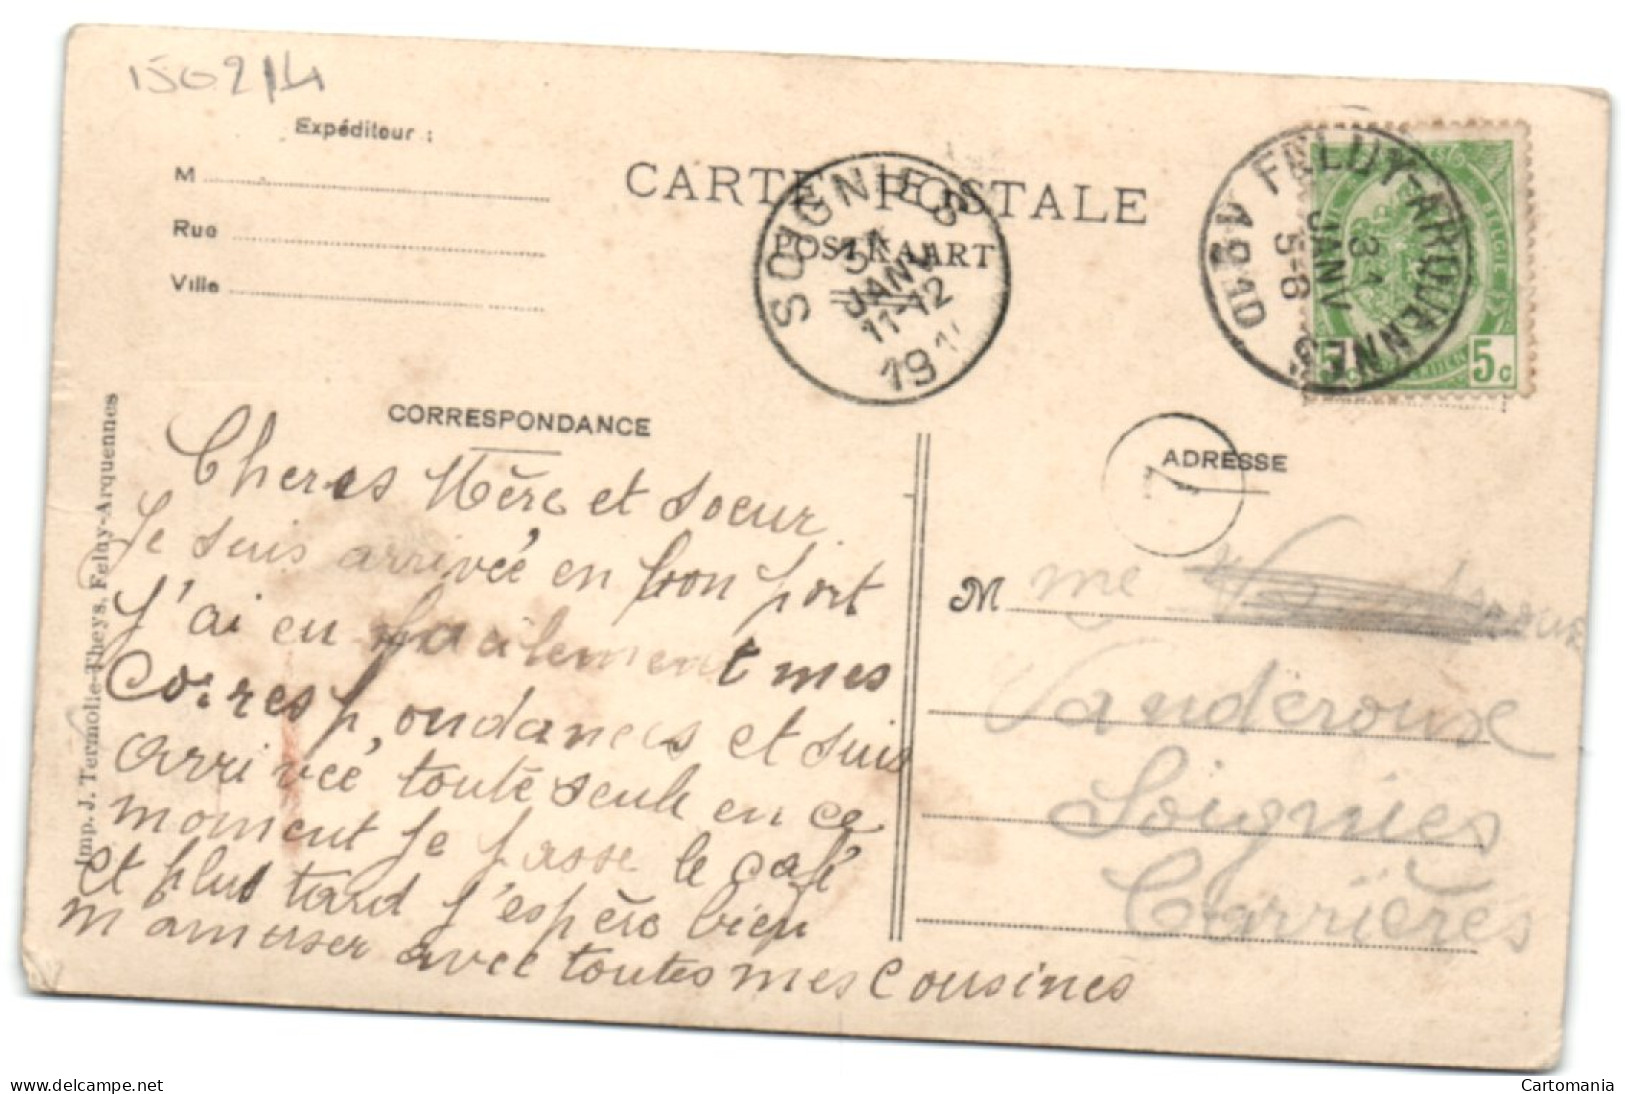 150214
Expéditeur :
M
Rue
Ville
CARTE POSTALE
POSTKAART
SOIGNIES
31
JANV
11-12
19
FELUY-ARQUENNES
31
JANV
5-6
5 5c
CORRESPONDANCE
ADRESSE
Cheres Mère et soeur
Je suis arrivée en bon port
J'ai eu facilement mes
correspondances et suis
arrivée toute seule en ce
moment je passe le café
et plus tard j'espère bien
m'amuser avec toutes mes cousines
M me
Vanderoux
Soignies
Carrières
Imp. J. Termolle-Theys, Feluy-Arquennes
www.delcampe.net
Cartomania